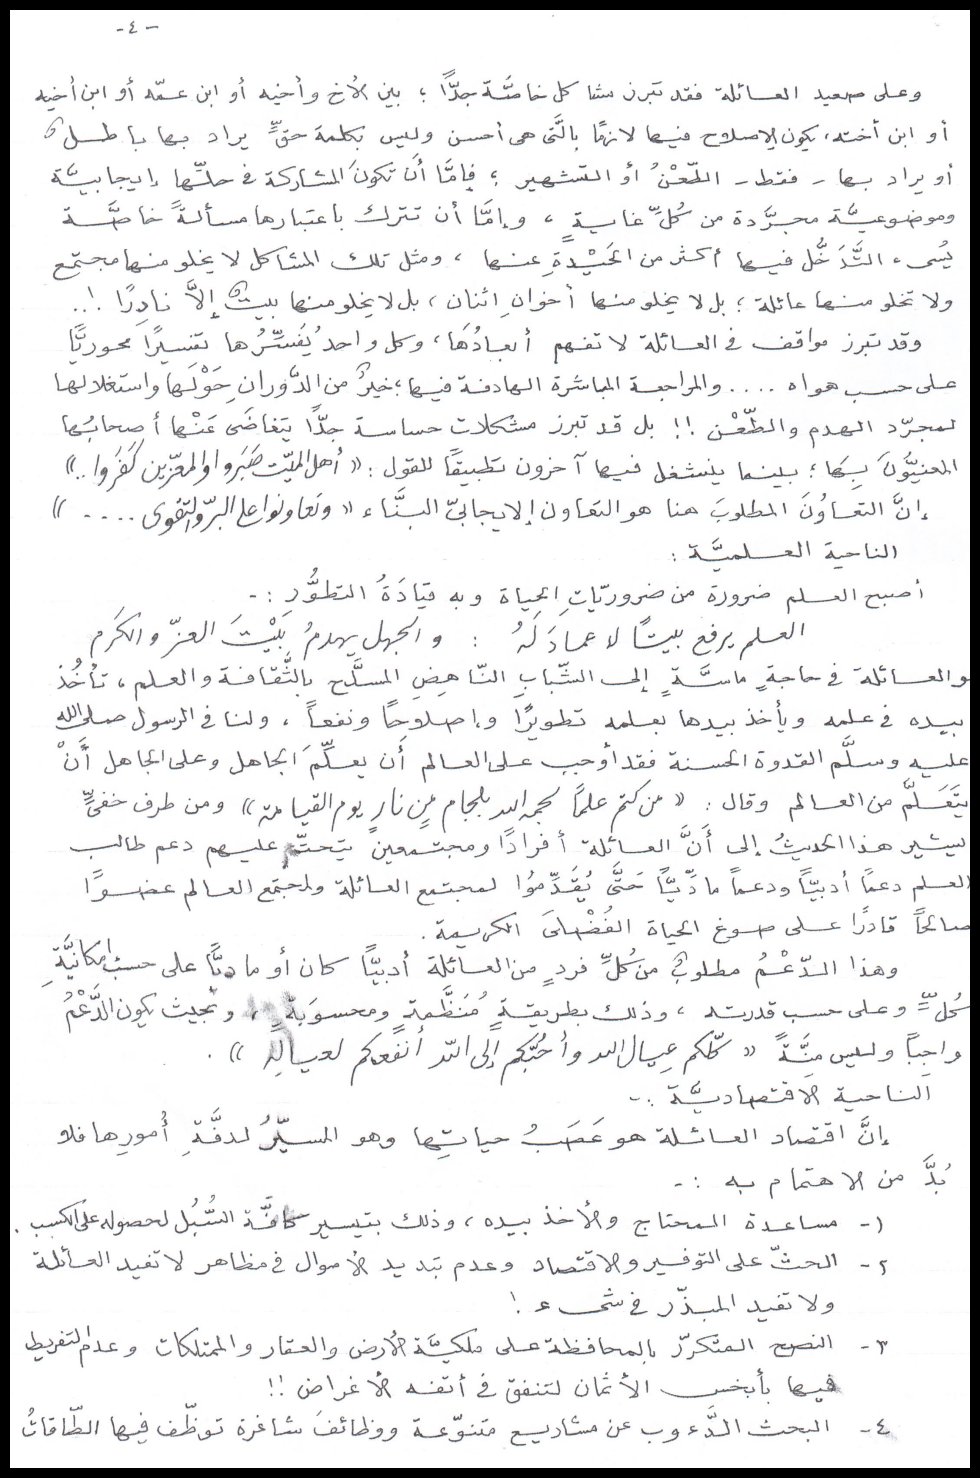 -٤-
وعلى صعيد العائلة فقد تبرز مشاكل خاصَّة جدًّا ؛ بين الأخ وأخيه أو ابن عمّه أو ابن أخيه
أو ابن أخته، يكون الإصلاح فيها لازمًا بالَّتي هي أحسن وليس بكلمة حقٍّ يراد بها باطلٌ
أو يراد بها - فقط - الطّعْنُ أو التشهير ؛ فإمَّا أن تكونَ المشاركة في حلّها إيجابيَّة
وموضوعيَّة مجرَّدة من كُلِّ غايةٍ ، وإمَّا أن تترك باعتبارها مسألةً خاصَّة
يُسيء التَّدَخُّل فيها أكثر من الحَيْدةِ عنها ، ومثل تلك المشاكل لا يخلو منها مجتمع
ولا تخلو منها عائلة ؛ بل لا يخلو منها أخوانِ اثنان ، بل لا يخلو منها بيتٌ إلاَّ نادِرًا !..
وقد تبرز مواقف في العائلة لا تفهم أبعادُهَا ، وكل واحد يُفَسِّرُها تفسيرًا محوريًّا
على حسب هواه .... والمراجعة المباشرة الهادفة فيها ؛ خيرٌ من الدَّوران حَوْلَها واستغلالها
لمجرّد الهدم والطّعْن !! بل قد تبرز مشكلات حساسة جدًّا يتغاضَى عَنْها أصحابُها
المعنيُّونَ بِهَا ؛ بينما ينشغل فيها آخرون تطبيقًا للقول : « أهل الميّت صَبَروا والمعزّين كَفَروا .. »
إنَّ التعَاوُنَ المطلوبَ هنا هو التعاون الإيجابيّ البنَّاء « وتعاونوا على البرّ والتقوى .... »
الناحية العلميَّة :
أصبح العلم ضرورة من ضروريّاتِ الحياة وبه قيادَةُ التطوُّرِ :-
العلم يرفع بيتًا لا عمادَ لَهُ : والجهل يهدمُ بَيْتَ العزّ والكرَم
والعائلة في حاجةٍ ماسَّةٍ إلى الشّبابِ النّاهضِ المسلَّحِ بالثّقافة والعلم ، تأخُذ
بيده في علمه ويأخذ بيدها بعلمه تطويرًا وإصلاحًا ونفعاً ، ولنا في الرسول صلى الله
عليه وسلَّم القدوة الحسنة فقد أوجب على العالم أن يعلِّمَ الجاهل وعلى الجاهل أَنْ
يتَعَلَّمَ من العالم وقال : « من كتم علماً لجمه الله بلجام مِن نارٍ يوم القيامة » ومن طرف خفيٍّ
يشير هذا الحديثُ إلى أنَّ العائلة أفرادًا ومجتمعين يتحتّم عليهم دعم طالب
العلم دعمًا أدبيّاً ودعماً مادّيّاً حَتَّى يُقَدِّمُوا لمجتمع العائلة ولمجتمع العالم عضوًا
صالحًا قادرًا على صوغ الحياة الفُضْلَى الكريمة .
وهذا الدّعْمُ مطلوبٌ من كُلِّ فردٍ من العائلة أدبيًّا كان أو ماديًّا على حسب إمكانيَّةِ
كُلٍّ وعلى حسب قدرته ، وذلك بطريقةٍ مُنَظَّمةٍ ومحسوبَةٍ ، وبحيث يكون الدَّعْمُ
واجبًا وليس مِنَّةً « كلّكم عِيال الله وأحبُّكم إلى اللّه أنفعكم لعيالِهِ » .
الناحية الاقتصاديَّة :-
إنَّ اقتصاد العائلة هو عَصَبُ حياتِها وهو المسيّرُ لدفَّةِ أُمورِها فلا
بُدَّ من الاهتمام به :-
١- مساعدة المحتاج والأخذ بيده ، وذلك بتيسير كافَّة السُّبُل لحصوله على الكسب .
٢- الحثّ على التوفير والاقتصاد وعدم تبديد الأموال في مظاهر لا تفيد العائلة
ولا تفيد المبذّر في شيء !
٣- النصح المتكرّر بالمحافظة على ملكيَّة الأرض والعقار والممتلكات وعدم التفريط
فيها بأبخس الأثمان لتنفق في أتفه الأغراض !!
٤- البحث الدَّءوب عن مشاريع متنوّعة ووظائفَ شاغرة توظّف فيها الطّاقاتُ